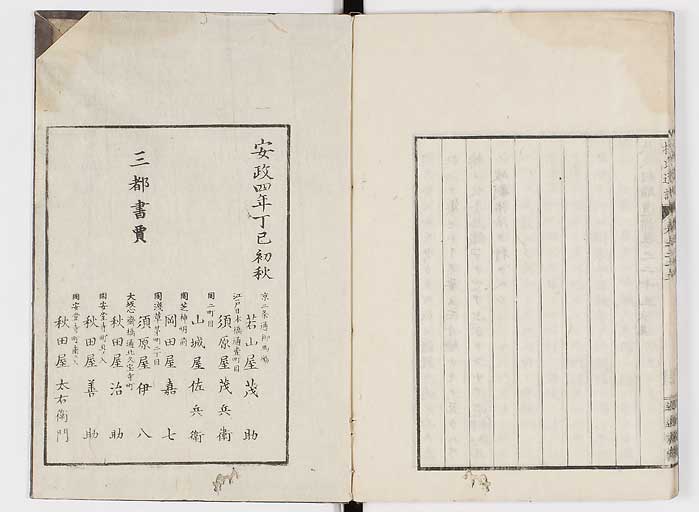 安政四年丁巳初秋
三都書賈
京二条通御幸町
若山屋茂助
江戸日本橋通壹町目
須原屋茂兵衛
同二町目
山城屋佐兵衛
同芝神明前
岡田屋嘉七
同淺草茅町二丁目
須原屋伊八
大坂心齋橋通北久宝寺町
秋田屋治助
同安堂寺町
秋田屋善助
同安堂寺町
秋田屋太右衛門